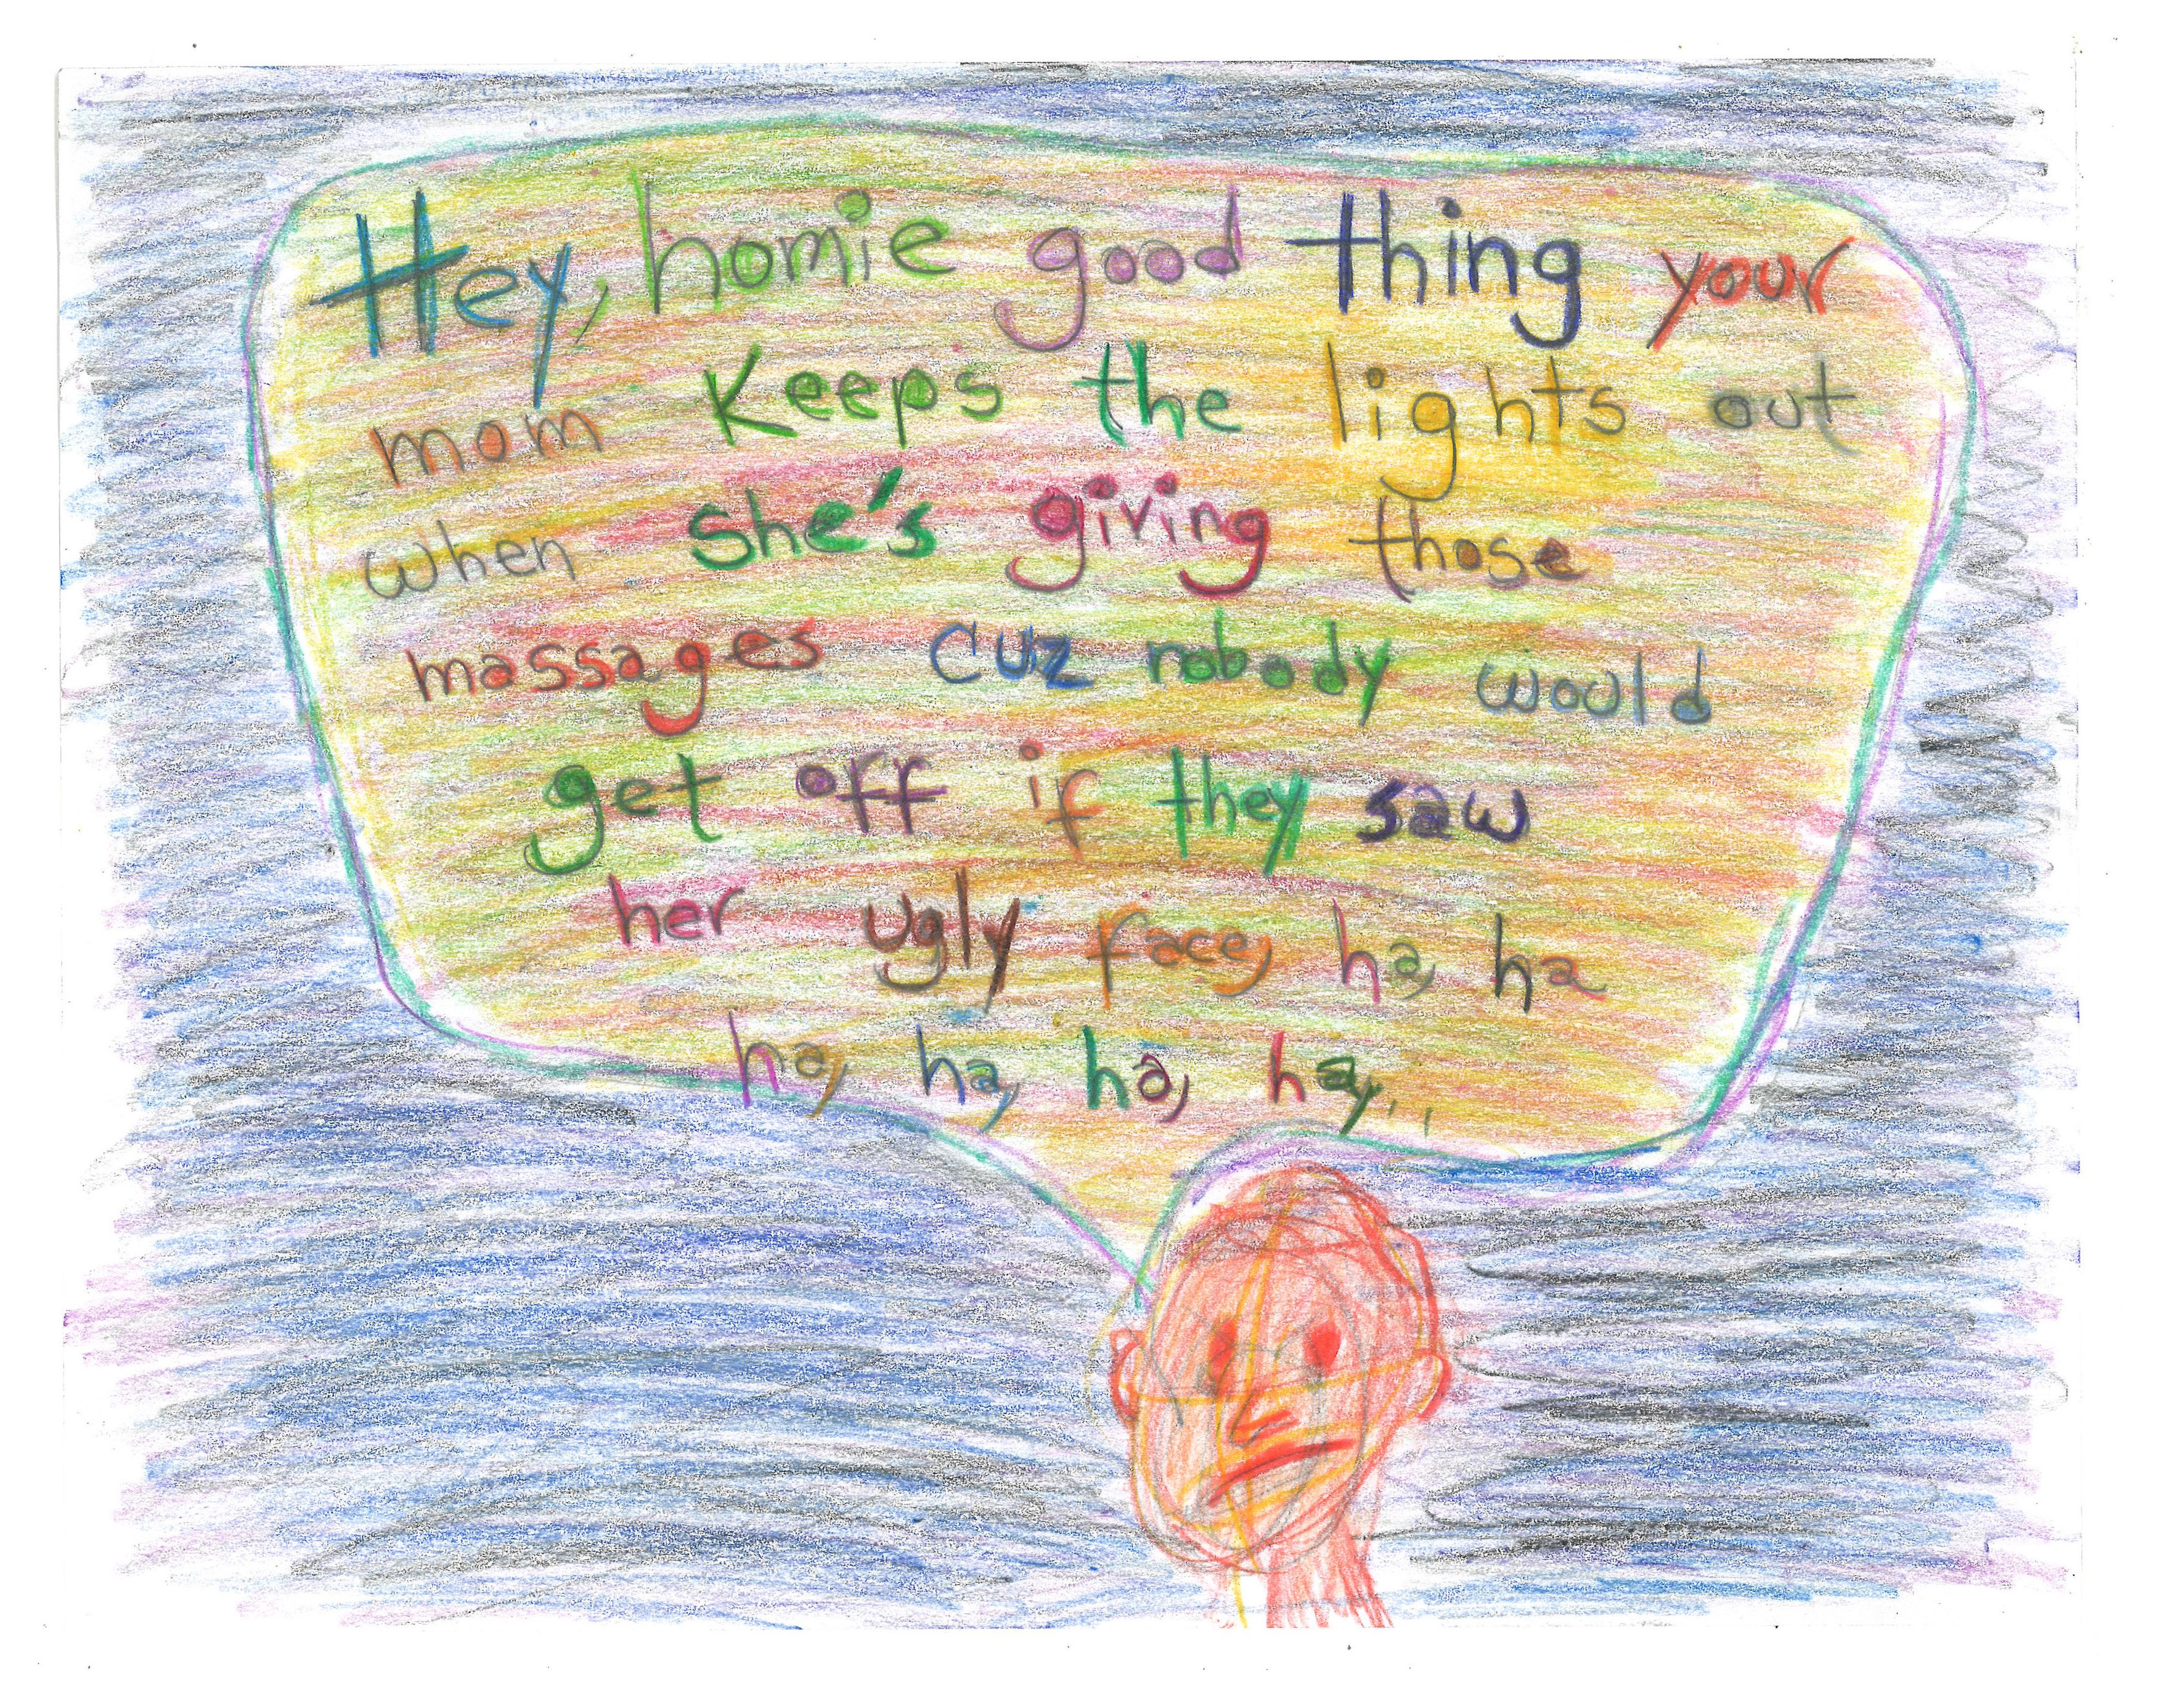 Hey, homie good thing your
mom keeps the lights out
when she's giving those
massages cuz nobody would
get off if they saw
her ugly face, ha, ha
ha, ha, ha, ha,...